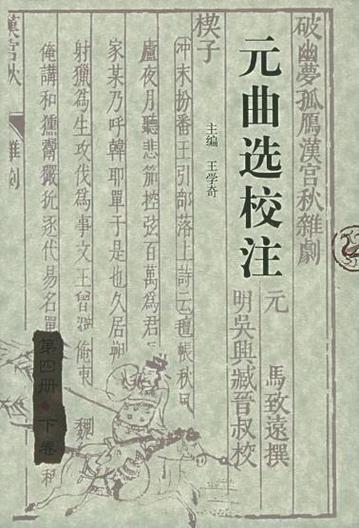 破幽夢孤鴈漢宮秋雜劇
元 馬致遠撰
明吳興臧晉叔校
元曲选校注
主编 王学奇
楔子
冲末扮番王引部落上詩云氊帳秋風
廬夜月聽悲笳控弦百萬爲君
家某乃呼韓耶單于是也久居朔
射獵爲生攻伐爲事文王曾避俺東 魏
俺講和獯鬻玁狁逐代易名單
漢宮秋 雜劇
第四册·下卷